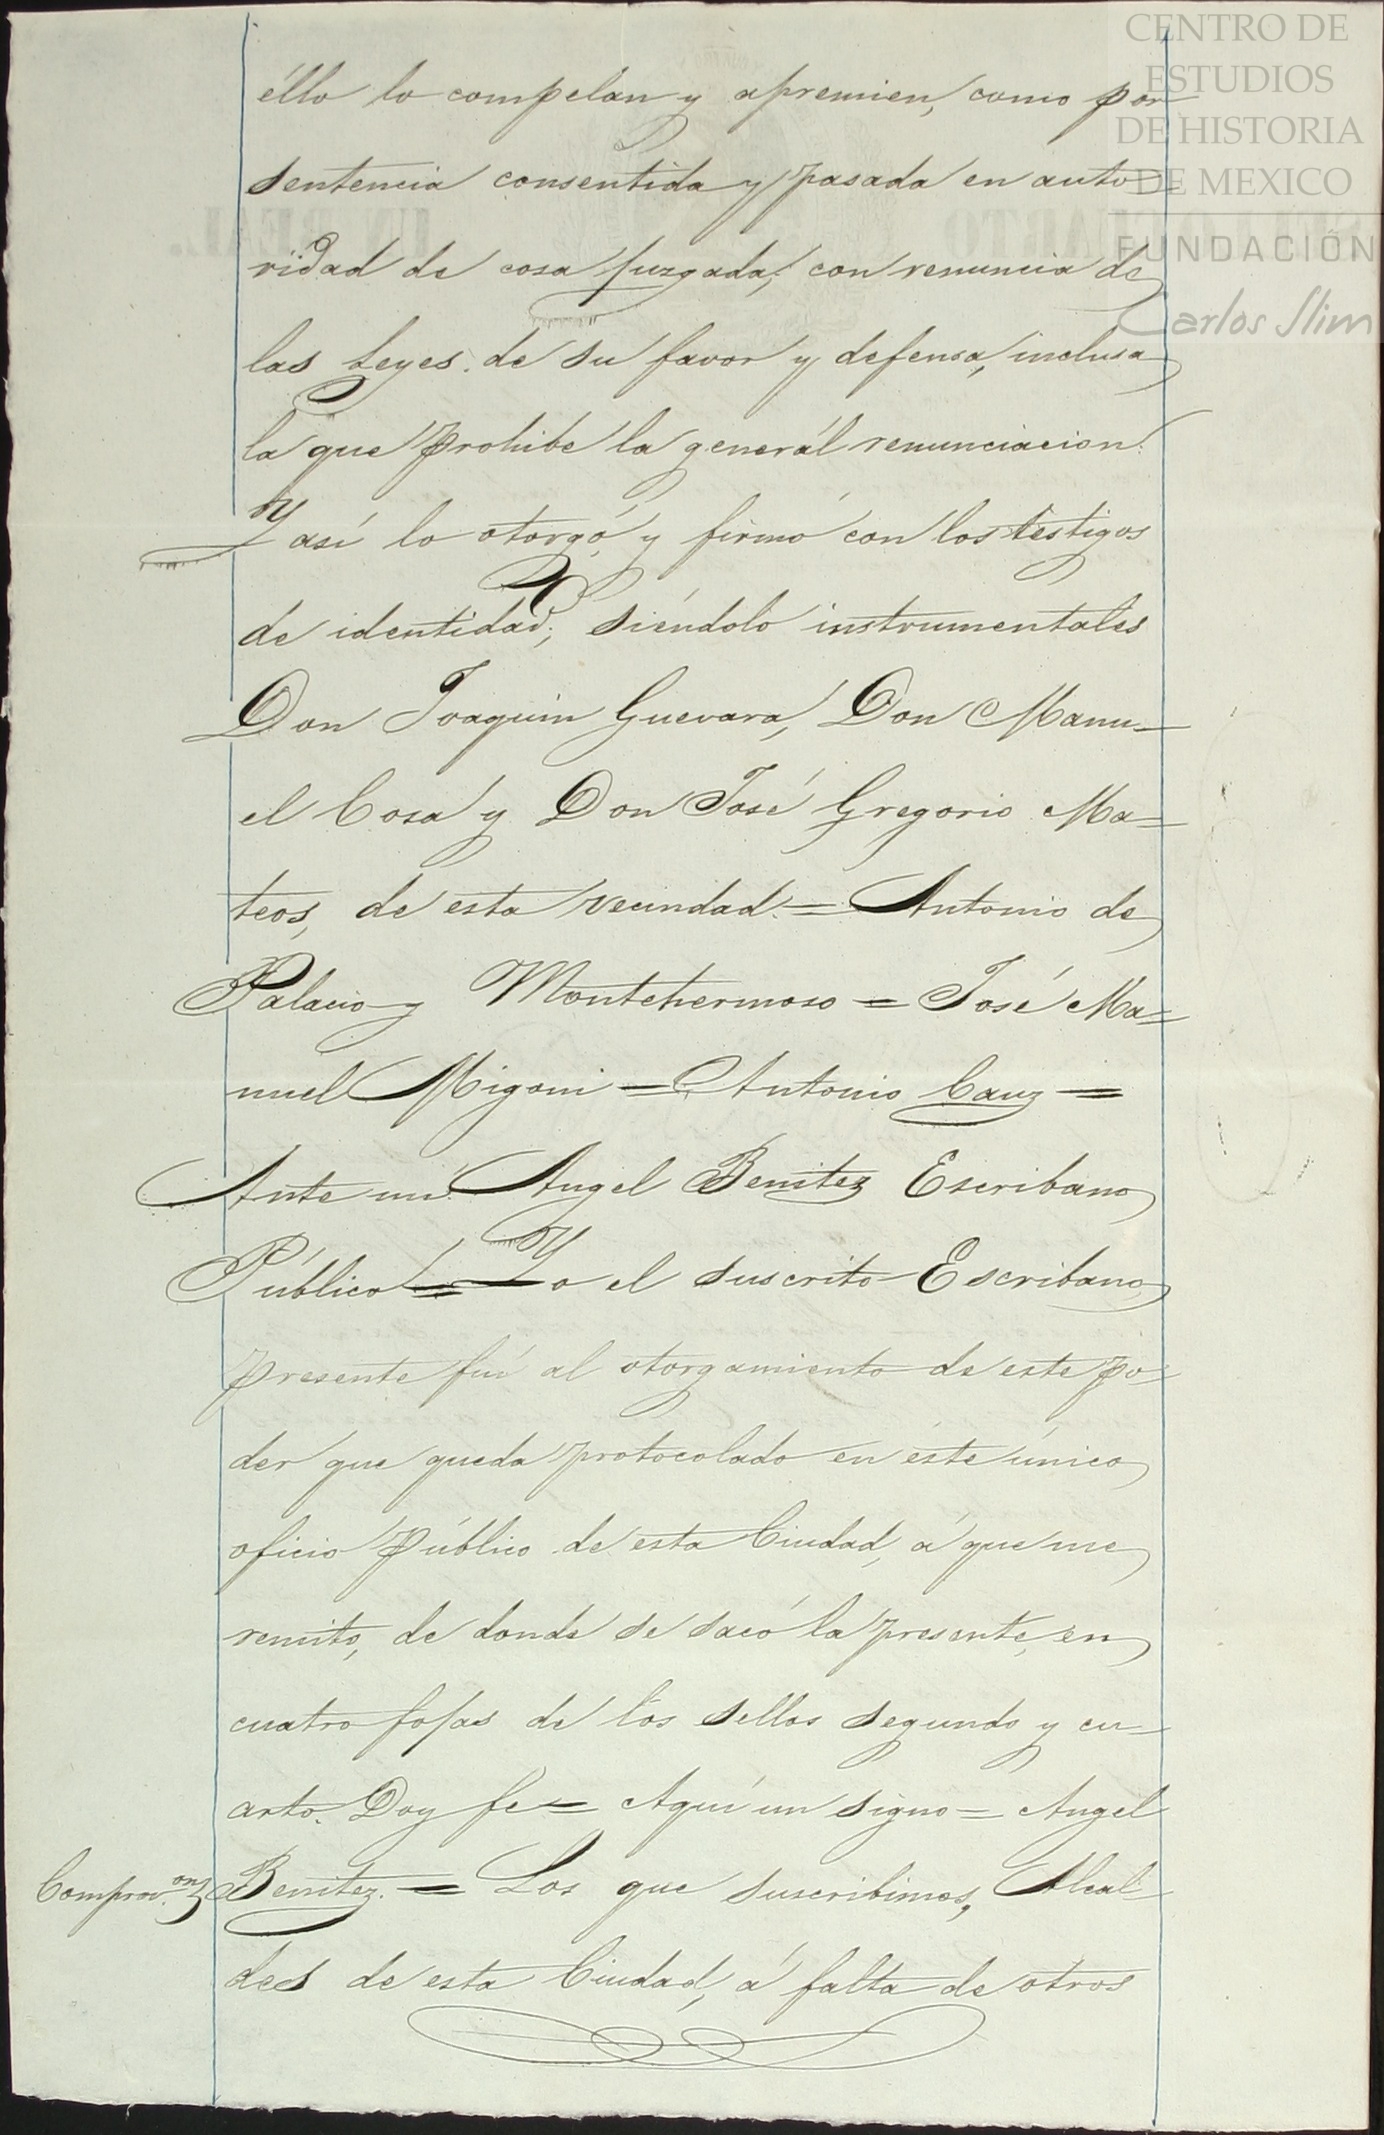 CENTRO DE
ESTUDIOS
DE HISTORIA
DE MEXICO
FUNDACIÓN
Carlos Slim
éllo lo compelan y apremien, como por
sentencia consentida y pasada en auto-
ridad de cosa juzgada, con renuncia de
las Leyes de su favor y defensa, inclusa
la que prohibe la generál renunciacion.
Y así lo otorgó y firmó con los testigos
de identidad, siéndolo instrumentales
Don Joaquin Guevara, Don Manu-
el Cosa y Don José Gregorio Ma=
teos, de esta vecindad.= Antonio de
Palacio y Montehermoso = José Ma=
nuel Migoni = Antonio Cauz =
Ante mi Angel Benitez Escribano
Público = Yo el suscrito Escribano
presente fuí al otorgamiento de este po-
der que queda protocolado en éste único
oficio Público de esta Ciudad, á que me
remito, de donde se sacó la presente, en
cuatro fojas de los sellos segundo y cu-
arto. Doy fe = Aquí un signo = Angel
Comprov.on Benitez. = Los que suscribimos, Alcal-
des de esta Ciudad, á falta de otros